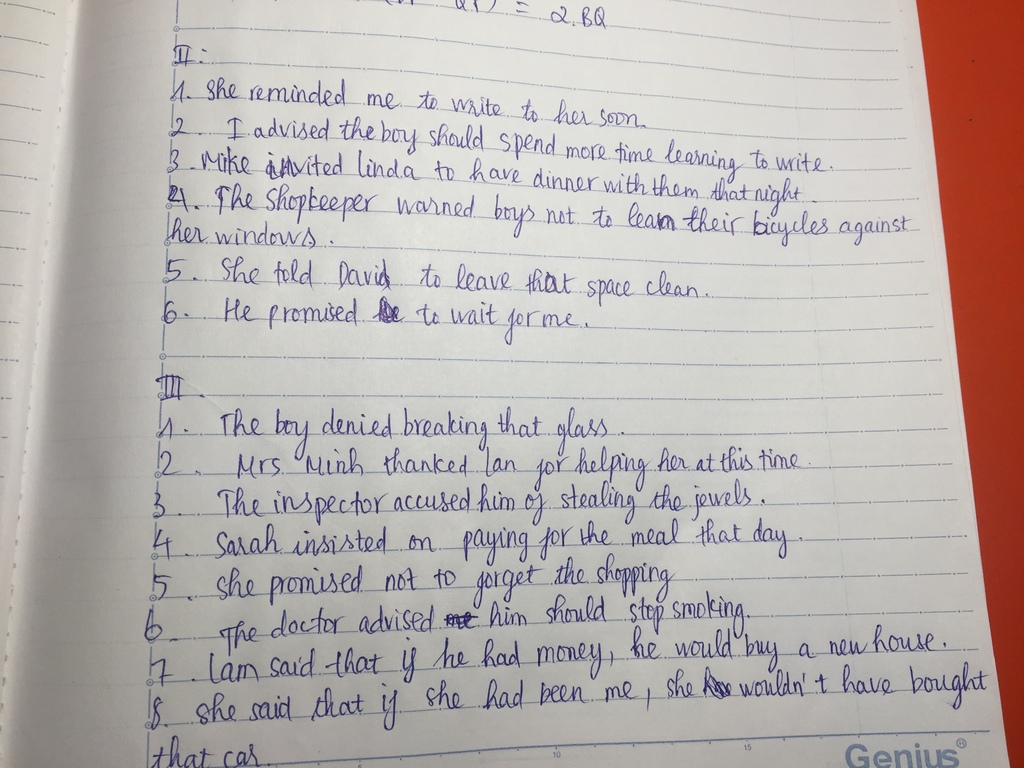 = 2.BQ
II:
1. She reminded me to write to her soon.
2. I advised the boy should spend more time learning to write.
3. Mike invited linda to have dinner with them that night.
4. The Shopkeeper warned boys not to lean their bicycles against
her windows.
5. She told David to leave that space clean.
6. He promised to wait for me.
III.
1. The boy denied breaking that glass.
2. Mrs. Minh thanked Lan for helping her at this time.
3. The inspector accused him of stealing the jewels.
4. Sarah insisted on paying for the meal that day.
5. She promised not to forget the shopping
6. The doctor advised him should stop smoking.
7. Lam said that if he had money, he would buy a new house.
8. she said that if she had been me, she wouldn't have bought
that car.
10 15
Genius